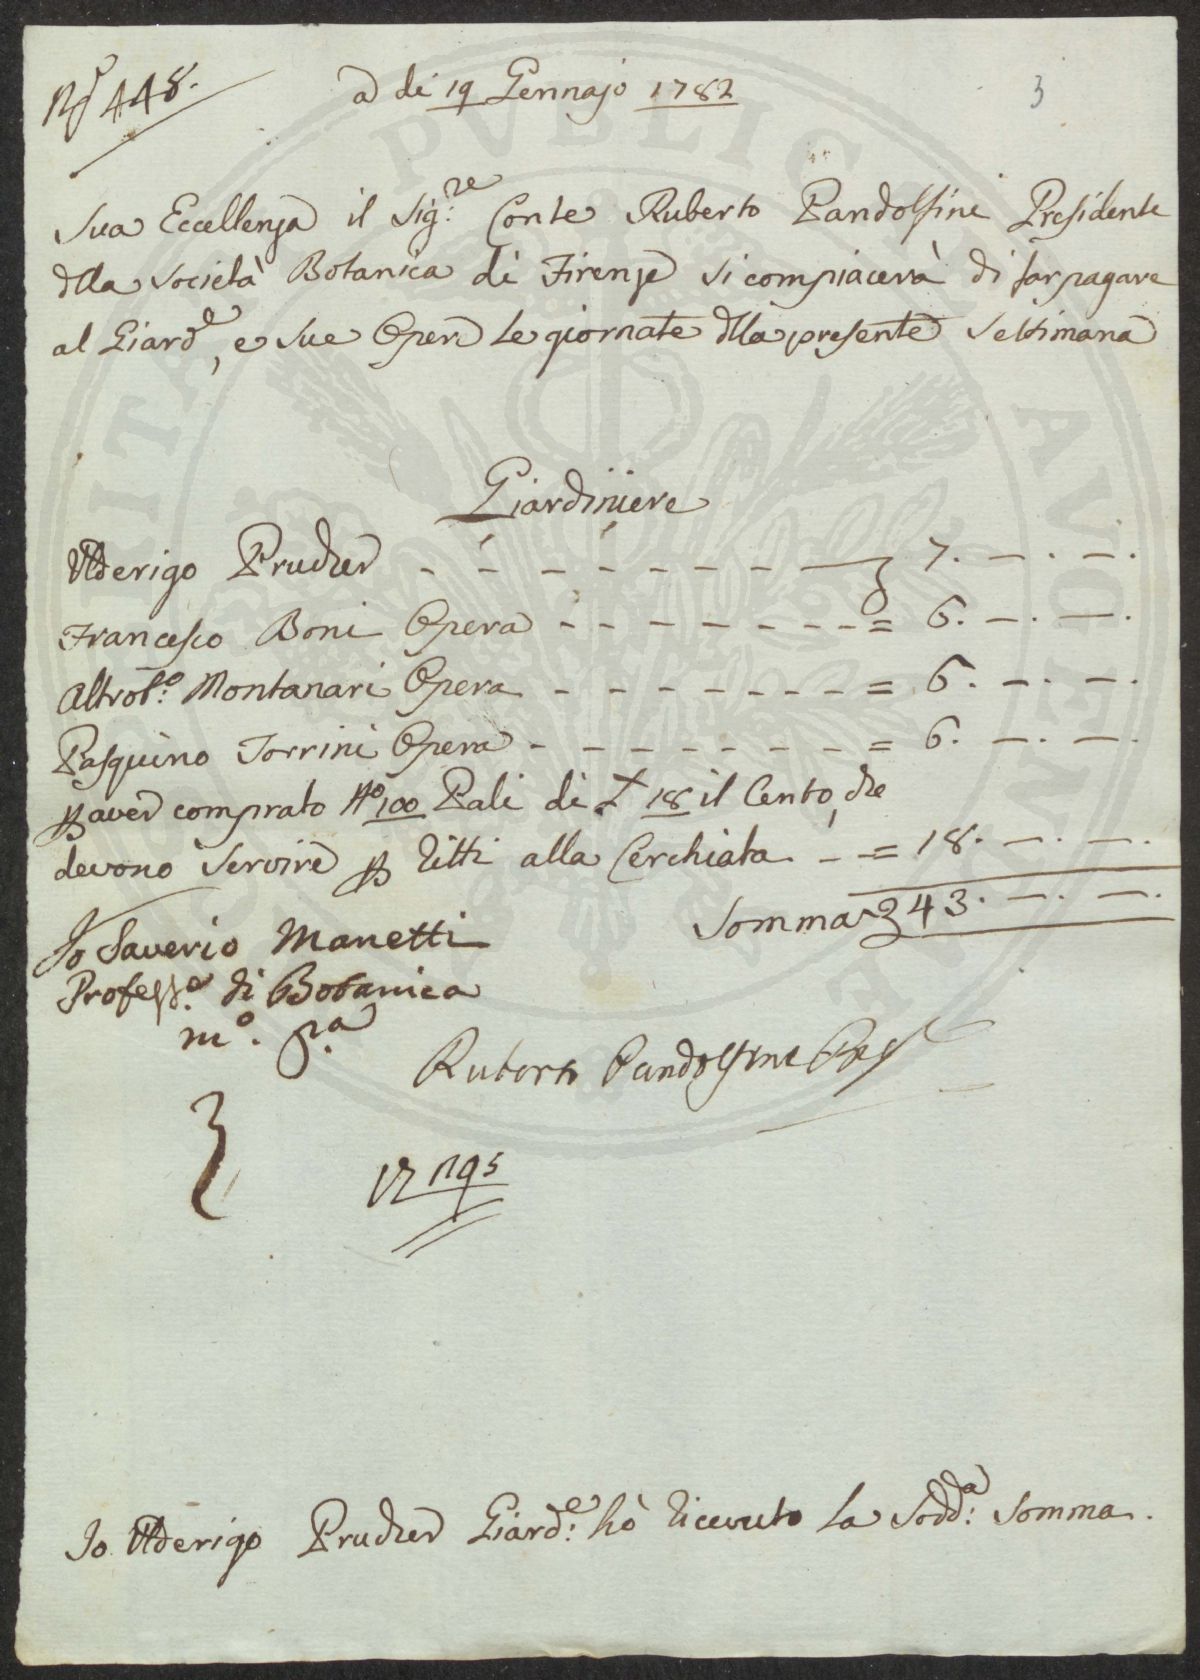 448.
a dì 19 Gennajo 1782
3
Sua Eccellenza il Sig.re Conte Ruberto Pandolfini Presidente
dlla Società Botanica di Firenze si compiacerà di far pagare
al Giard.e, e sue Opere le giornate dlla presente Settimana
Giardiniere
Ulderigo Prucher - - - - - - - - 7. —. —.
Francesco Boni Opera - - - - - - - = 6. —. —.
Montanari Opera - - - - - - - = 6. —. —.
Pasquino Torrini Opera - - - - - - - = 6. —. —.
p aver comprato No 100 Pali di £ 18 il Cento, che
devono servire p ritti alla Cerchiata. - = 18. —. —.
Somma 43. —. —.
Io Saverio Manetti
Profess.e di Botanica
m.o p.a
Ruberto Pandolfini Pres
Io Ulderigo Prucher Giard.e hò ricevuto la Sodd.a Somma.
PVBLICA
AVGENT